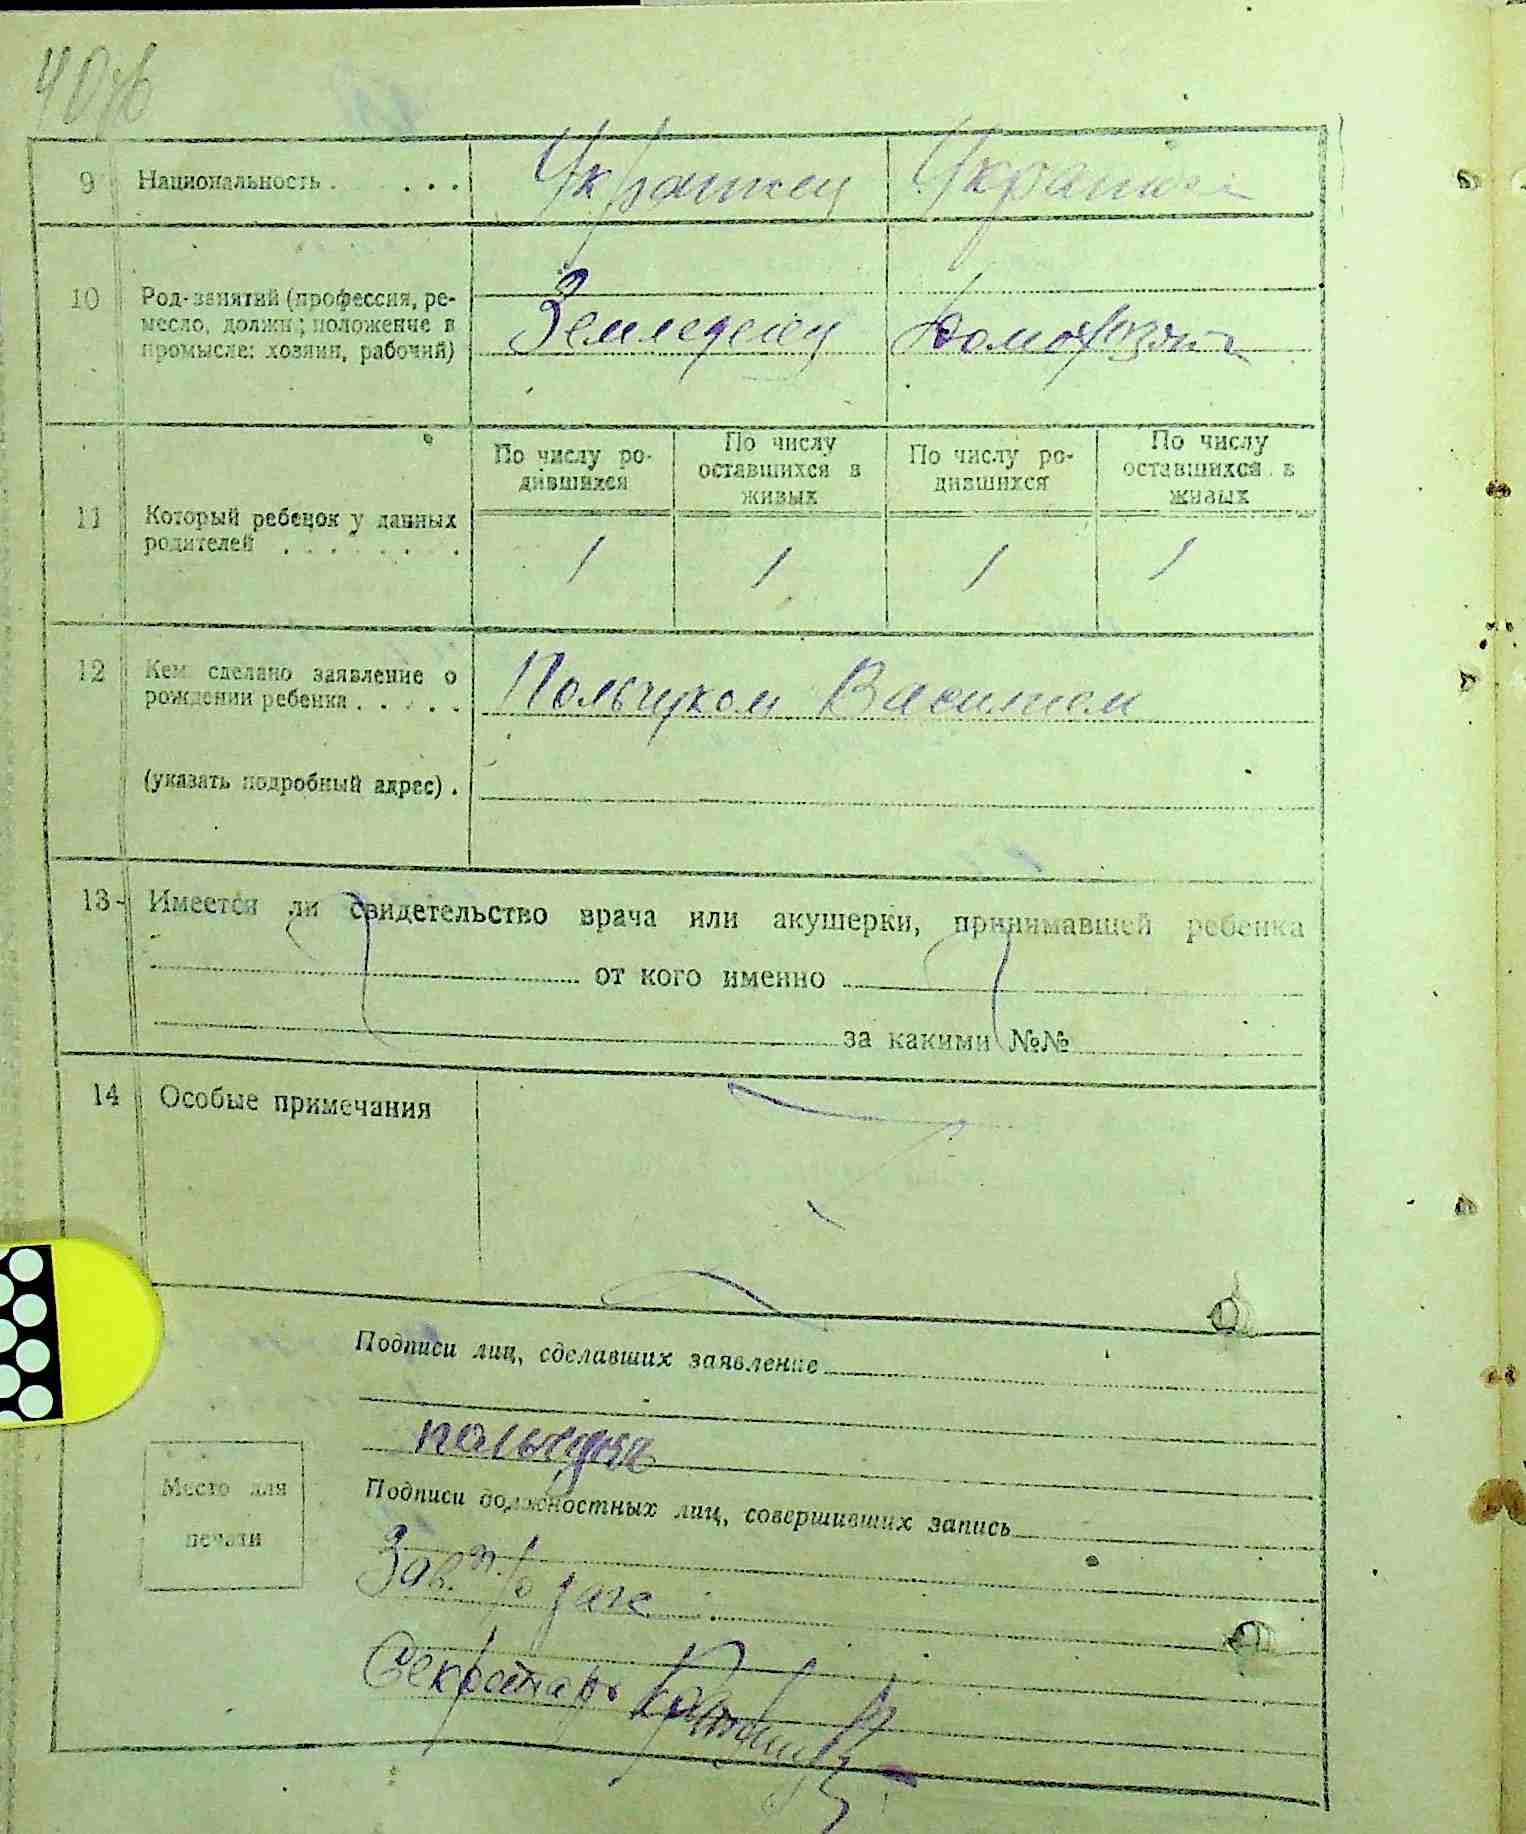 40об
9 Национальность . . . . Украинец Украин
10 Род-занятий (профессия, ре-
месло, должн; положение в
промысле: хозяин, рабочий) Земледелец Домохоз
По числу ро-
дившихся
По числу
оставшихся в
живых
По числу ро-
дившихся
По числу
оставшихся в
живых
11 Который ребенок у данных
родителей . . . . . . . .
1 1 1 1
12 Кем сделано заявление о
рождении ребенка . . . . . Польчуком Василием
(указать подробный адрес) .
13 Имеется ли свидетельство врача или акушерки, принимавшей ребенка
от кого именно
за какими №№
14 Особые примечания
Подписи лиц, сделавших заявление
польчук
Место для
печати
Подписи должностных лиц, совершивших запись
Зав.
Секретарь